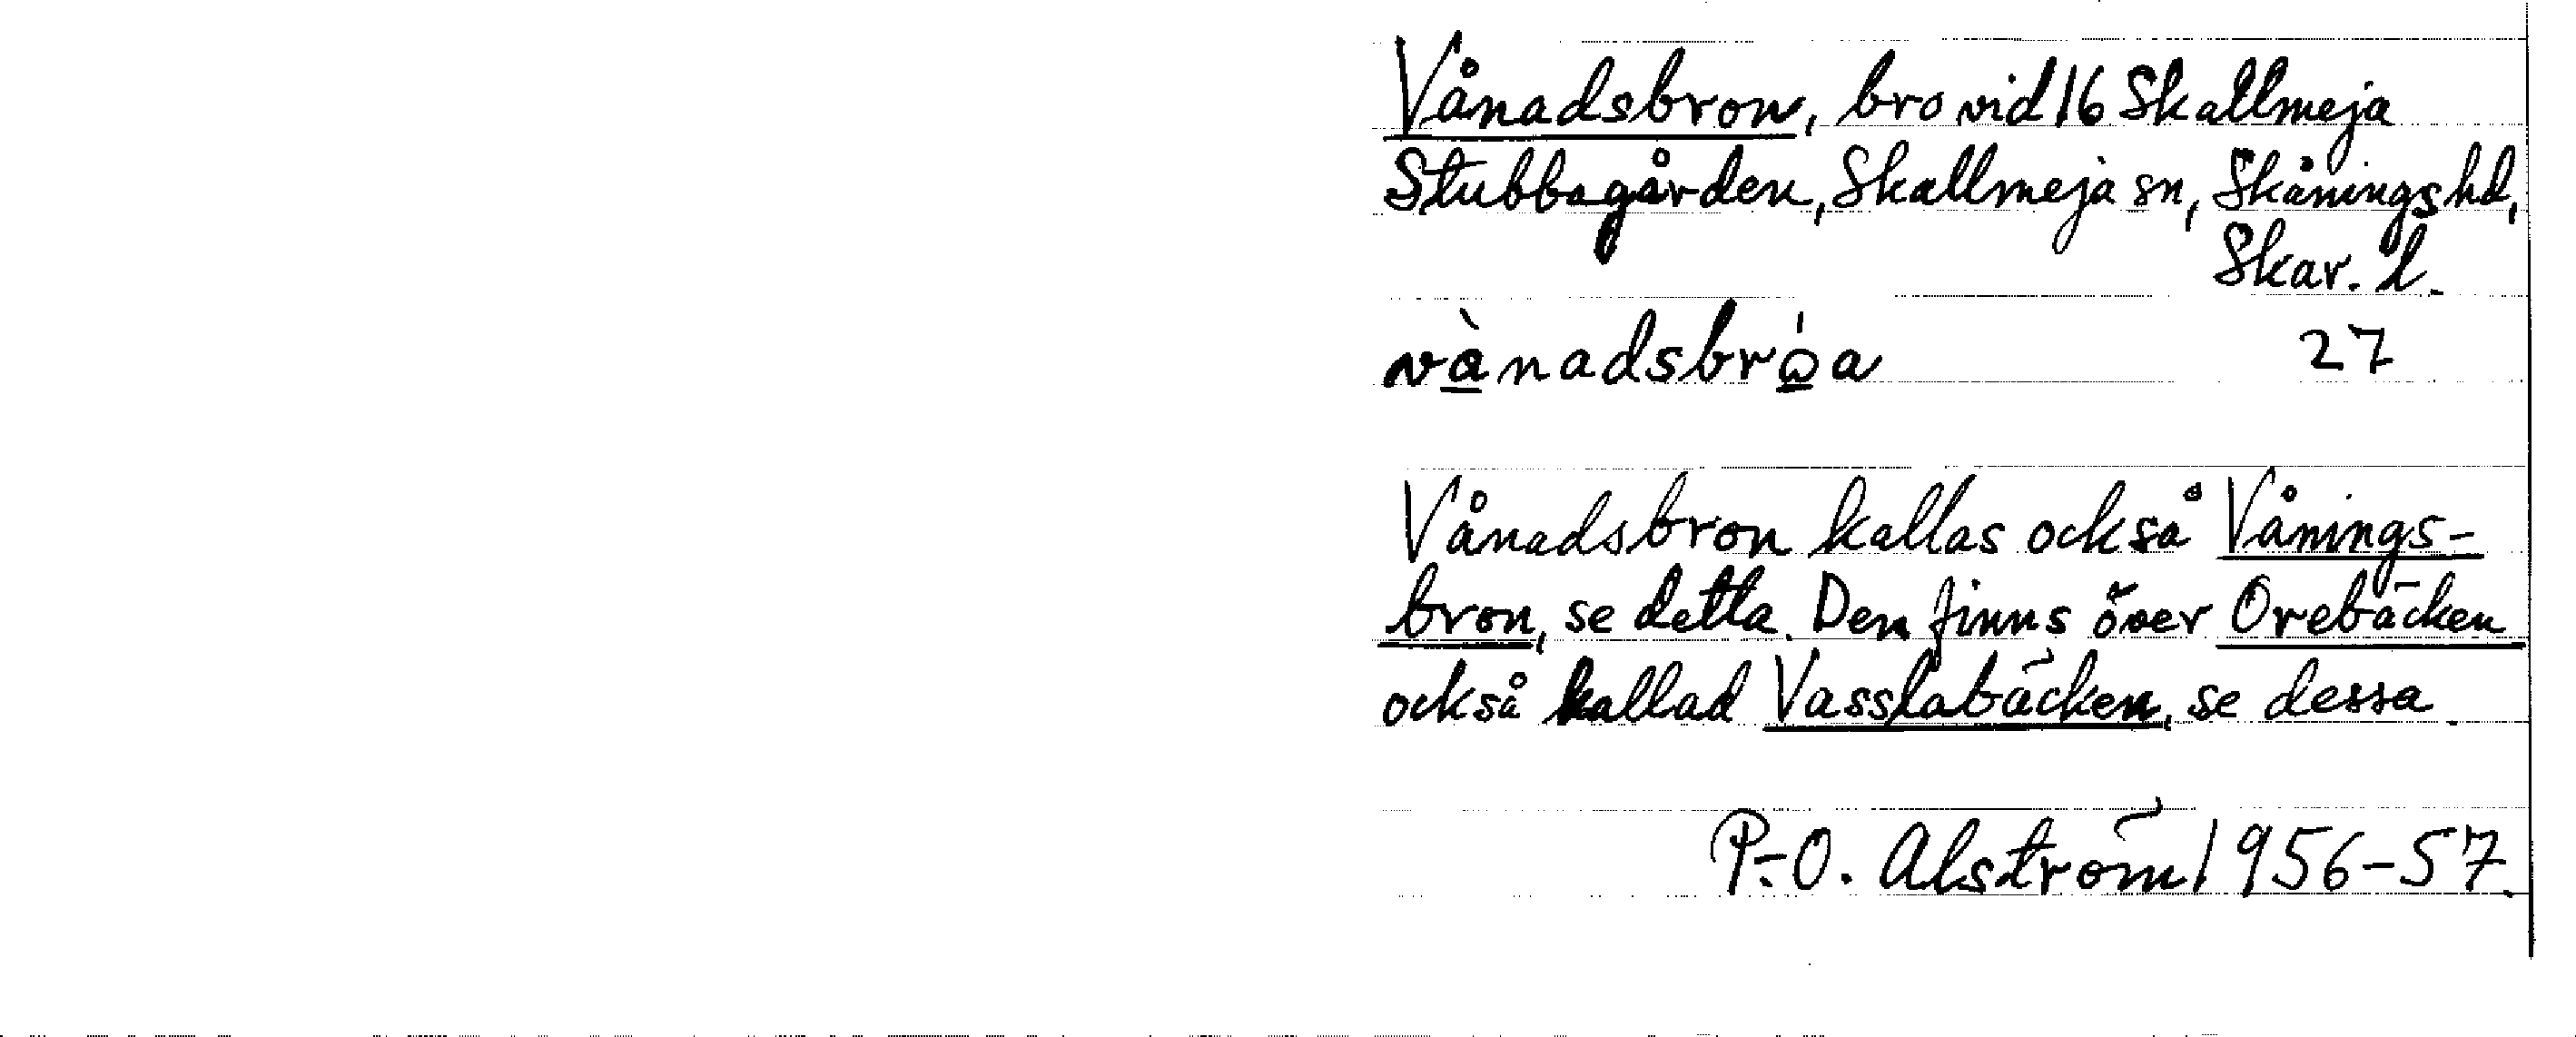 Vånadsbron, bro vid 16 Skallmeja
Stubbagården, Skallmeja sn, Skånings hd,
Skar. l.
và̱nadsbrώ̱a 27
Vånadsbron kallas också Vånings-
bron, se detta. Den finns över Orebäcken
också kallad Vasslabäcken, se dessa.
P.-O. Alström 1956-57.